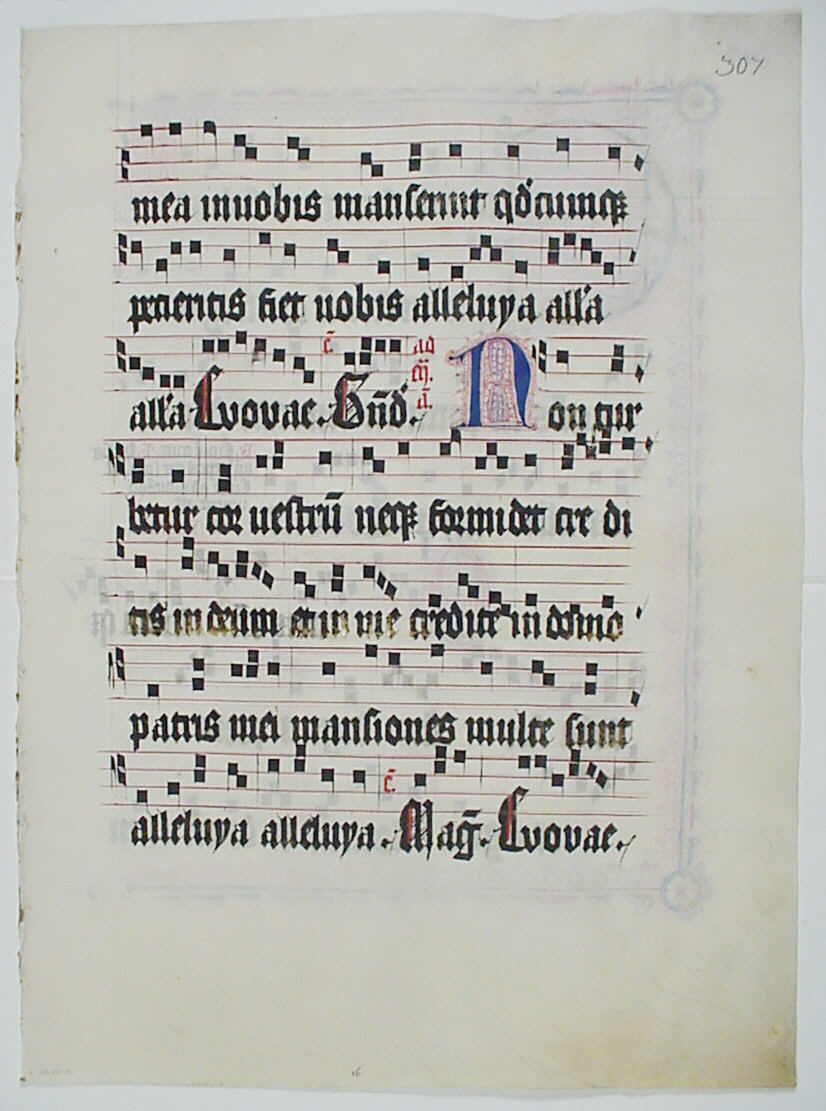 307
mea in uobis manserint qd̛cumq̨
petieritis fiet uobis alleluya all'a
all'a Euouae. Bn̄d'. ad m̄. a. Non tur
betur cor uestrū neq̨ formidet cre di
tis in deum et in me credite in domo
patris mei mansiones multe sunt
alleluya alleluya. Mag̃. Euouae.